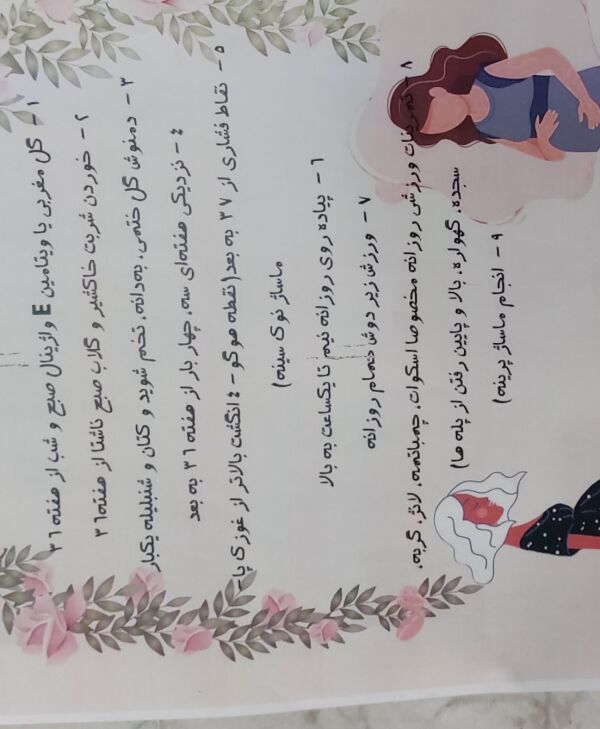 ۱- گل مغربی یا ویتامین E واژینال صبح و شب از هفته ۳۶
۲- خوردن شربت خاکشیر و گلاب صبح ناشتا از هفته ۳۶
۳- دمنوش گل ختمی، به‌دانه، تخم شوید و کتان و شنبلیله یکبار
۴- نزدیکی هفته‌ای سه، چهار بار از هفته ۳۶ به بعد
۵- نقاط فشاری از ۳۷ به بعد (نقطه هوگو - ۴ انگشت بالاتر از غوزی پا -
ماساژ نوک سینه)
۶- پیاده روی روزانه نیم تا یکساعت به بالا
۷- ورزش زیر دوش حمام روزانه
۸- تمرینات ورزشی روزانه مخصوصا اسکوات، چمباتمه، لانژ، گربه،
سجده، گهواره، بالا و پایین رفتن از پله ها)
۹- انجام ماساژ پرینه)